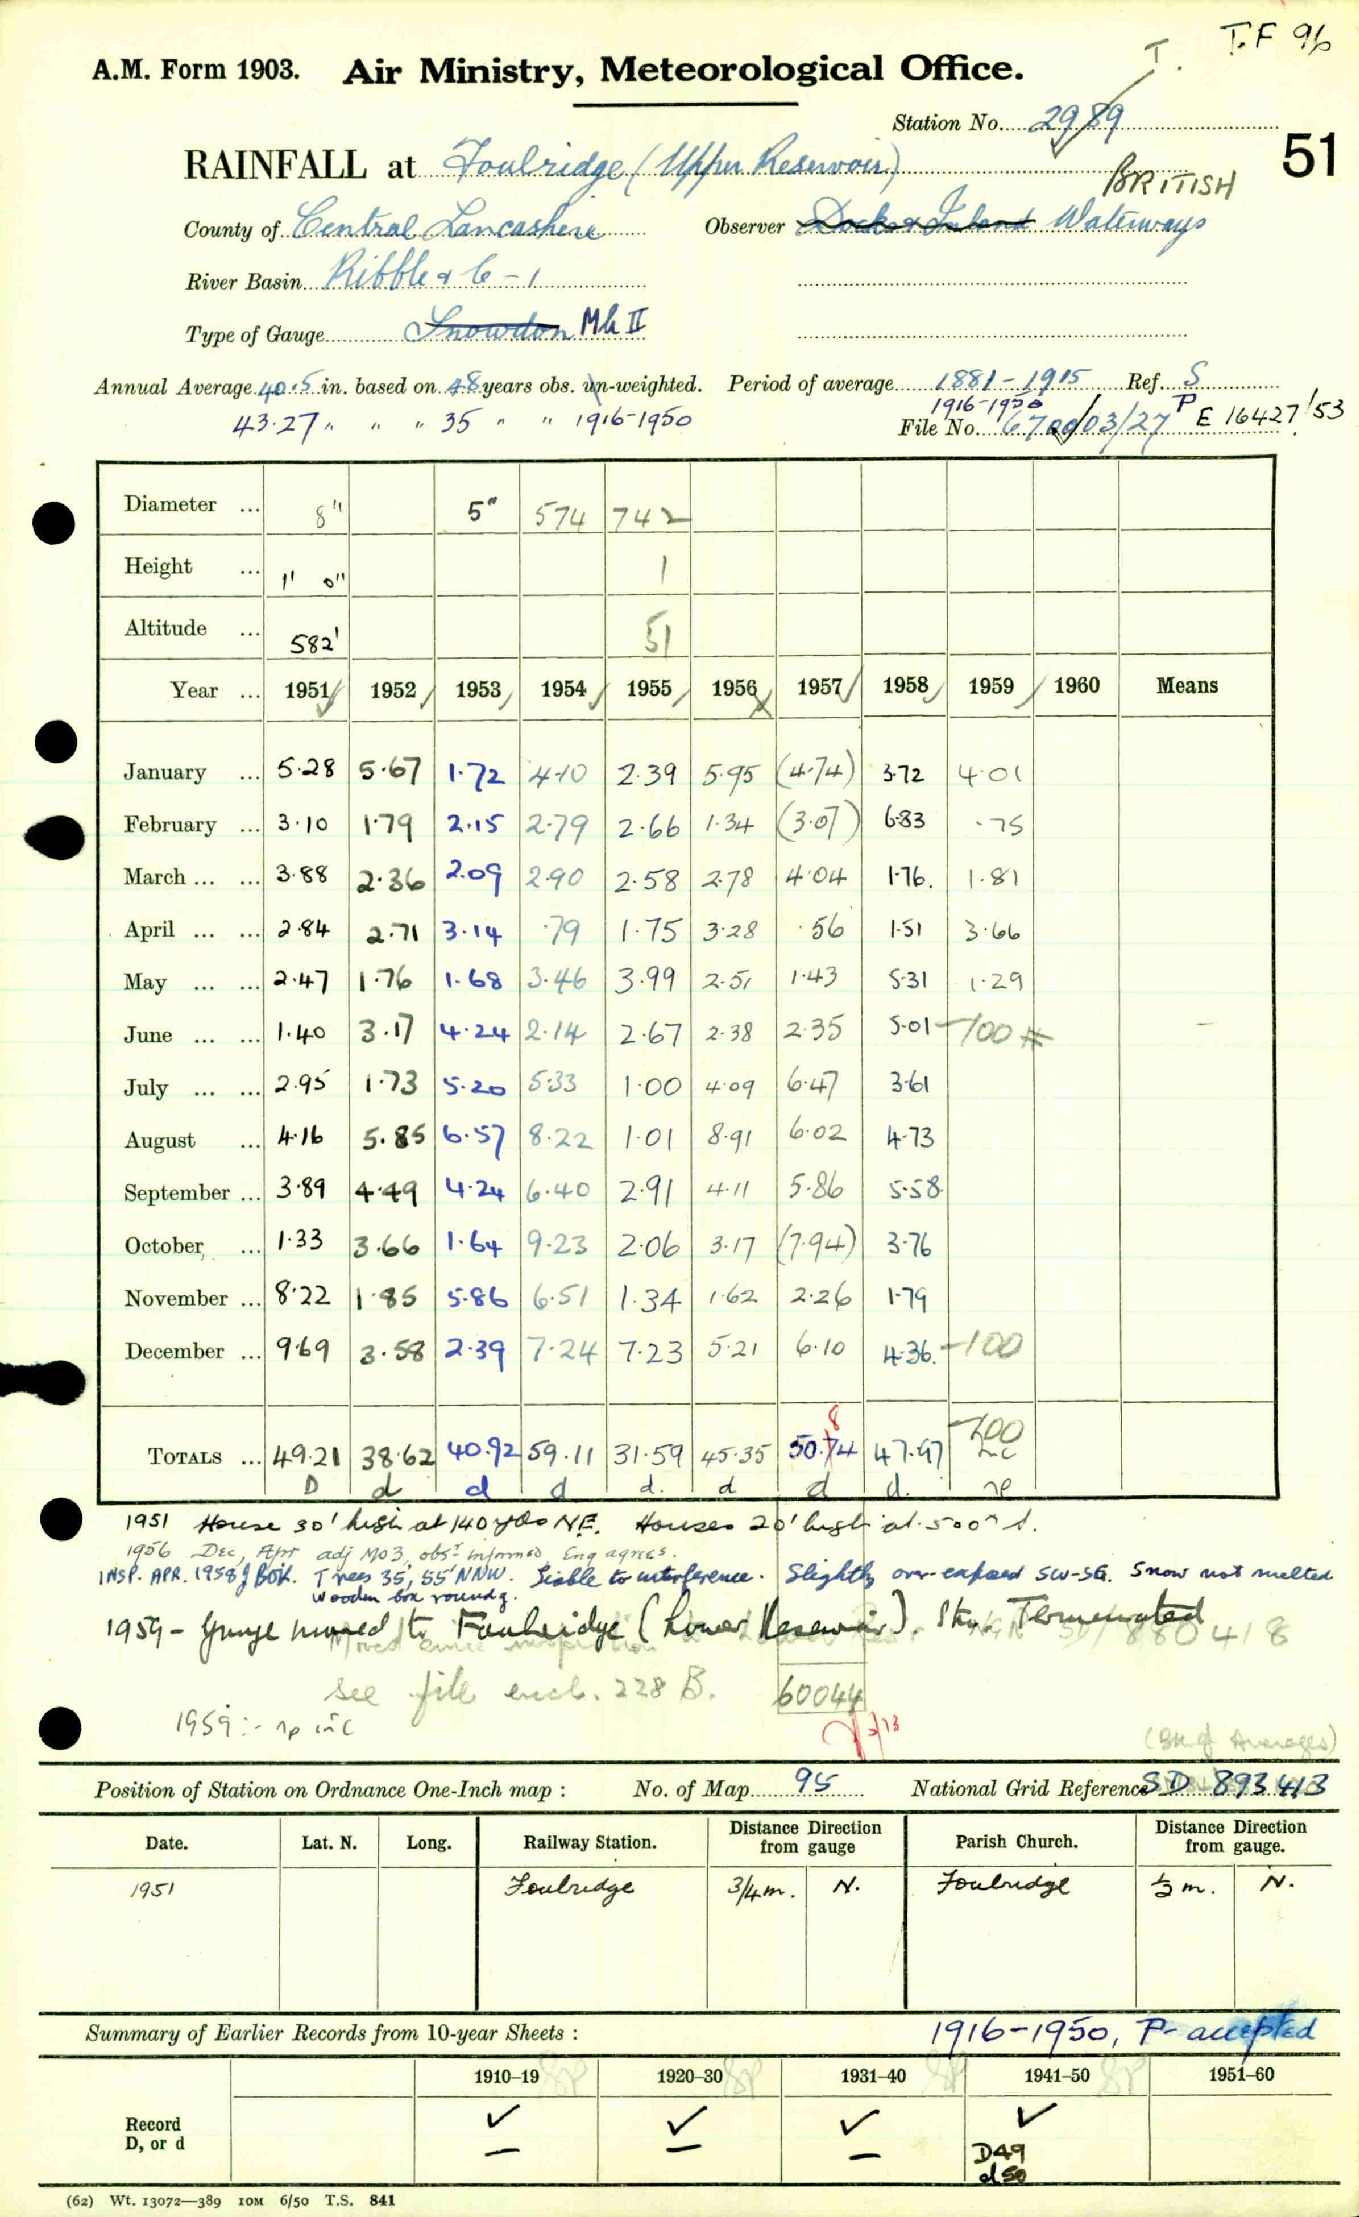 T.F 96
T.
A.M. Form 1903. Air Ministry, Meteorological Office.
Station No. 2989
51
RAINFALL at Foulridge (Upper Reservoir)
BRITISH
County of Central Lancashire Observer Docks & Inland Waterways
River Basin Ribble & C-1
Type of Gauge Snowdon Mk II
Annual Average 40.5 in. based on 48 years obs. un-weighted. Period of average 1881-1915 Ref. S
43.27 " " " 35 " " 1916-1950 1916-1950 P
File No. 03/27 E 16427/53
Diameter ... 8" 5" 574 742
Height ... 1' 0" 1
Altitude ... 582' 51
Year ... 1951 1952 1953 1954 1955 1956 1957 1958 1959 1960 Means
January ... 5.28 5.67 1.72 4.10 2.39 5.95 (4.74) 3.72 4.01
February ... 3.10 1.79 2.15 2.79 2.66 1.34 (3.07) 6.83 .75
March ... ... 3.88 2.36 2.09 2.90 2.58 2.78 4.04 1.76. 1.81
April ... ... 2.84 2.71 3.14 .79 1.75 3.28 .56 1.51 3.66
May ... ... 2.47 1.76 1.68 3.46 3.99 2.51 1.43 5.31 1.29
June ... ... 1.40 3.17 4.24 2.14 2.67 2.38 2.35 5.01 -100 #
July ... ... 2.95 1.73 5.20 5.33 1.00 4.09 6.47 3.61
August ... 4.16 5.85 6.57 8.22 1.01 8.91 6.02 4.73
September ... 3.89 4.49 4.24 6.40 2.91 4.11 5.86 5.58
October ... 1.33 3.66 1.64 9.23 2.06 3.17 (7.94) 3.76
November ... 8.22 1.85 5.86 6.51 1.34 1.62 2.26 1.79
December ... 9.69 3.58 2.39 7.24 7.23 5.21 6.10 4.36. -100
8
TOTALS ... 49.21 38.62 40.92 59.11 31.59 45.35 50.74 47.97 -100
D d d d d. d d d. np
1951 House 30' high at 140 yds NE. Houses 20' high at 500" S.
1956 Dec, Apr adj MO3, obsr informed, Eng agrees.
INSP. APR. 1958 Trees 35', 55' NNW. Liable to interference. Slightly over-exposed SW-SE. Snow not melted
Wooden box round g.
1959 - Gauge moved to Foulridge (Lower Reservoir). Stn. Terminated
SD/880418
see file encl. 228 B. 60044
1959 :- np inc
(Bk of Averages)
Position of Station on Ordnance One-Inch map : No. of Map 95 National Grid Reference SD 893413
Date. Lat. N. Long. Railway Station. Distance Direction from gauge Parish Church. Distance Direction from gauge.
1951 Foulridge 3/4 m. N. Foulridge 1/2 m. N.
Summary of Earlier Records from 10-year Sheets : 1916-1950, P- accepted
1910–19 1920–30 1931–40 1941–50 1951–60
Record ✓ ✓ ✓ ✓
D, or d — — — D49
d50
(62) Wt. 13072—389 10M 6/50 T.S. 841